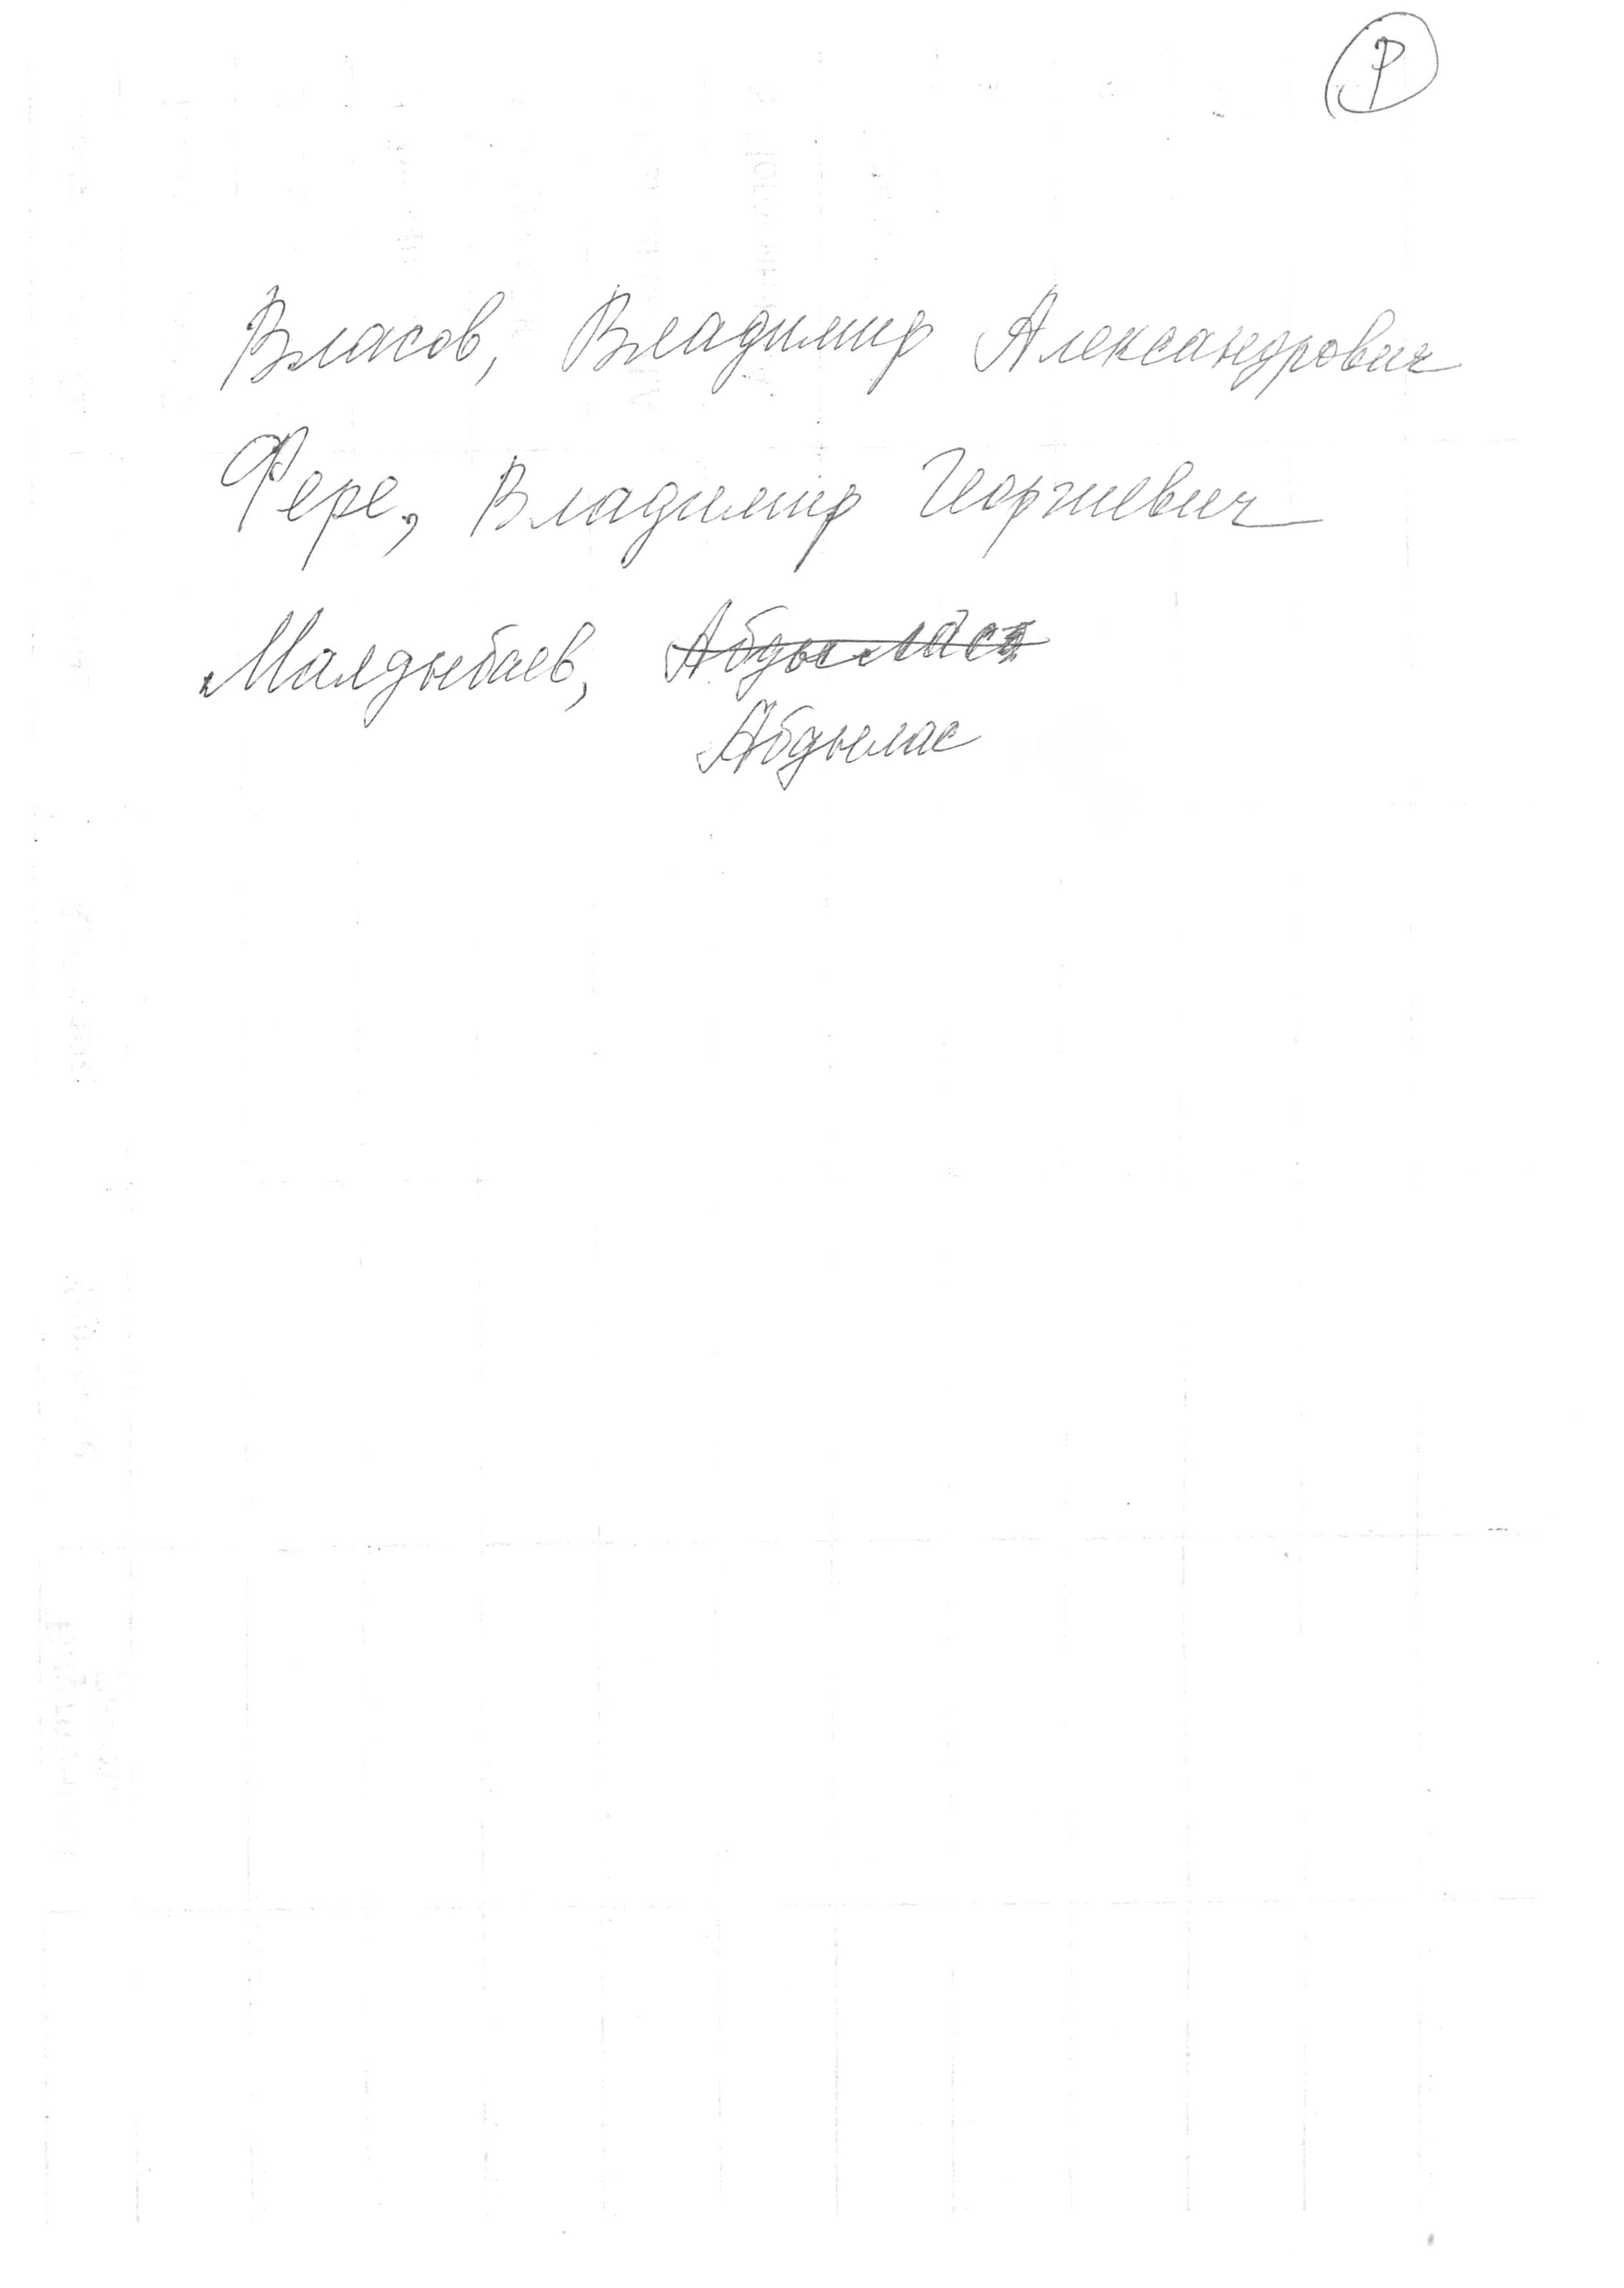 Р
Власов, Владимир Александрович
Фере, Владимир Георгиевич
Малдыбаев, Абдыласа
Абдылас